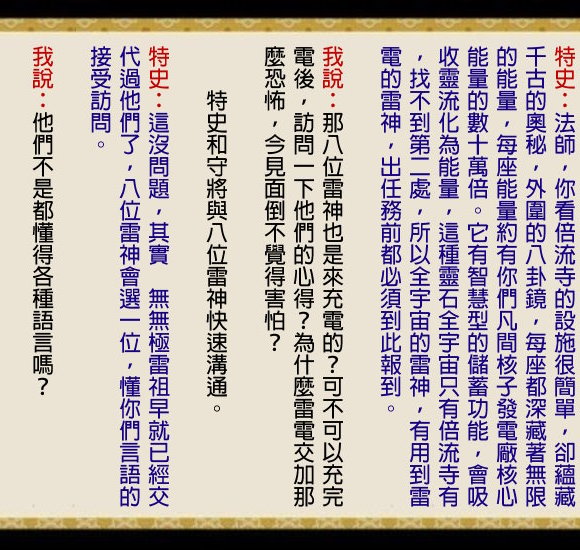 特史：法師，你看倍流寺的設施很簡單，卻蘊藏
千古的奧秘，外圍的八卦鏡，每座都深藏著無限
的能量，每座能量約有你們凡間核子發電廠核心
能量的數十萬倍。它有智慧型的儲蓄功能，會吸
收靈流化為能量，這種靈石全宇宙只有倍流寺有
，找不到第二處，所以全宇宙的雷神，有用到雷
電的雷神，出任務前都必須到此報到。
我說：那八位雷神也是來充電的？可不可以充完
電後，訪問一下他們的心得？為什麼雷電交加那
麼恐怖，今見面倒不覺得害怕？
特史和守將與八位雷神快速溝通。
特史：這沒問題，其實　無無極雷祖早就已經交
代過他們了，八位雷神會選一位，懂你們言語的
接受訪問。
我說：他們不是都懂得各種語言嗎？